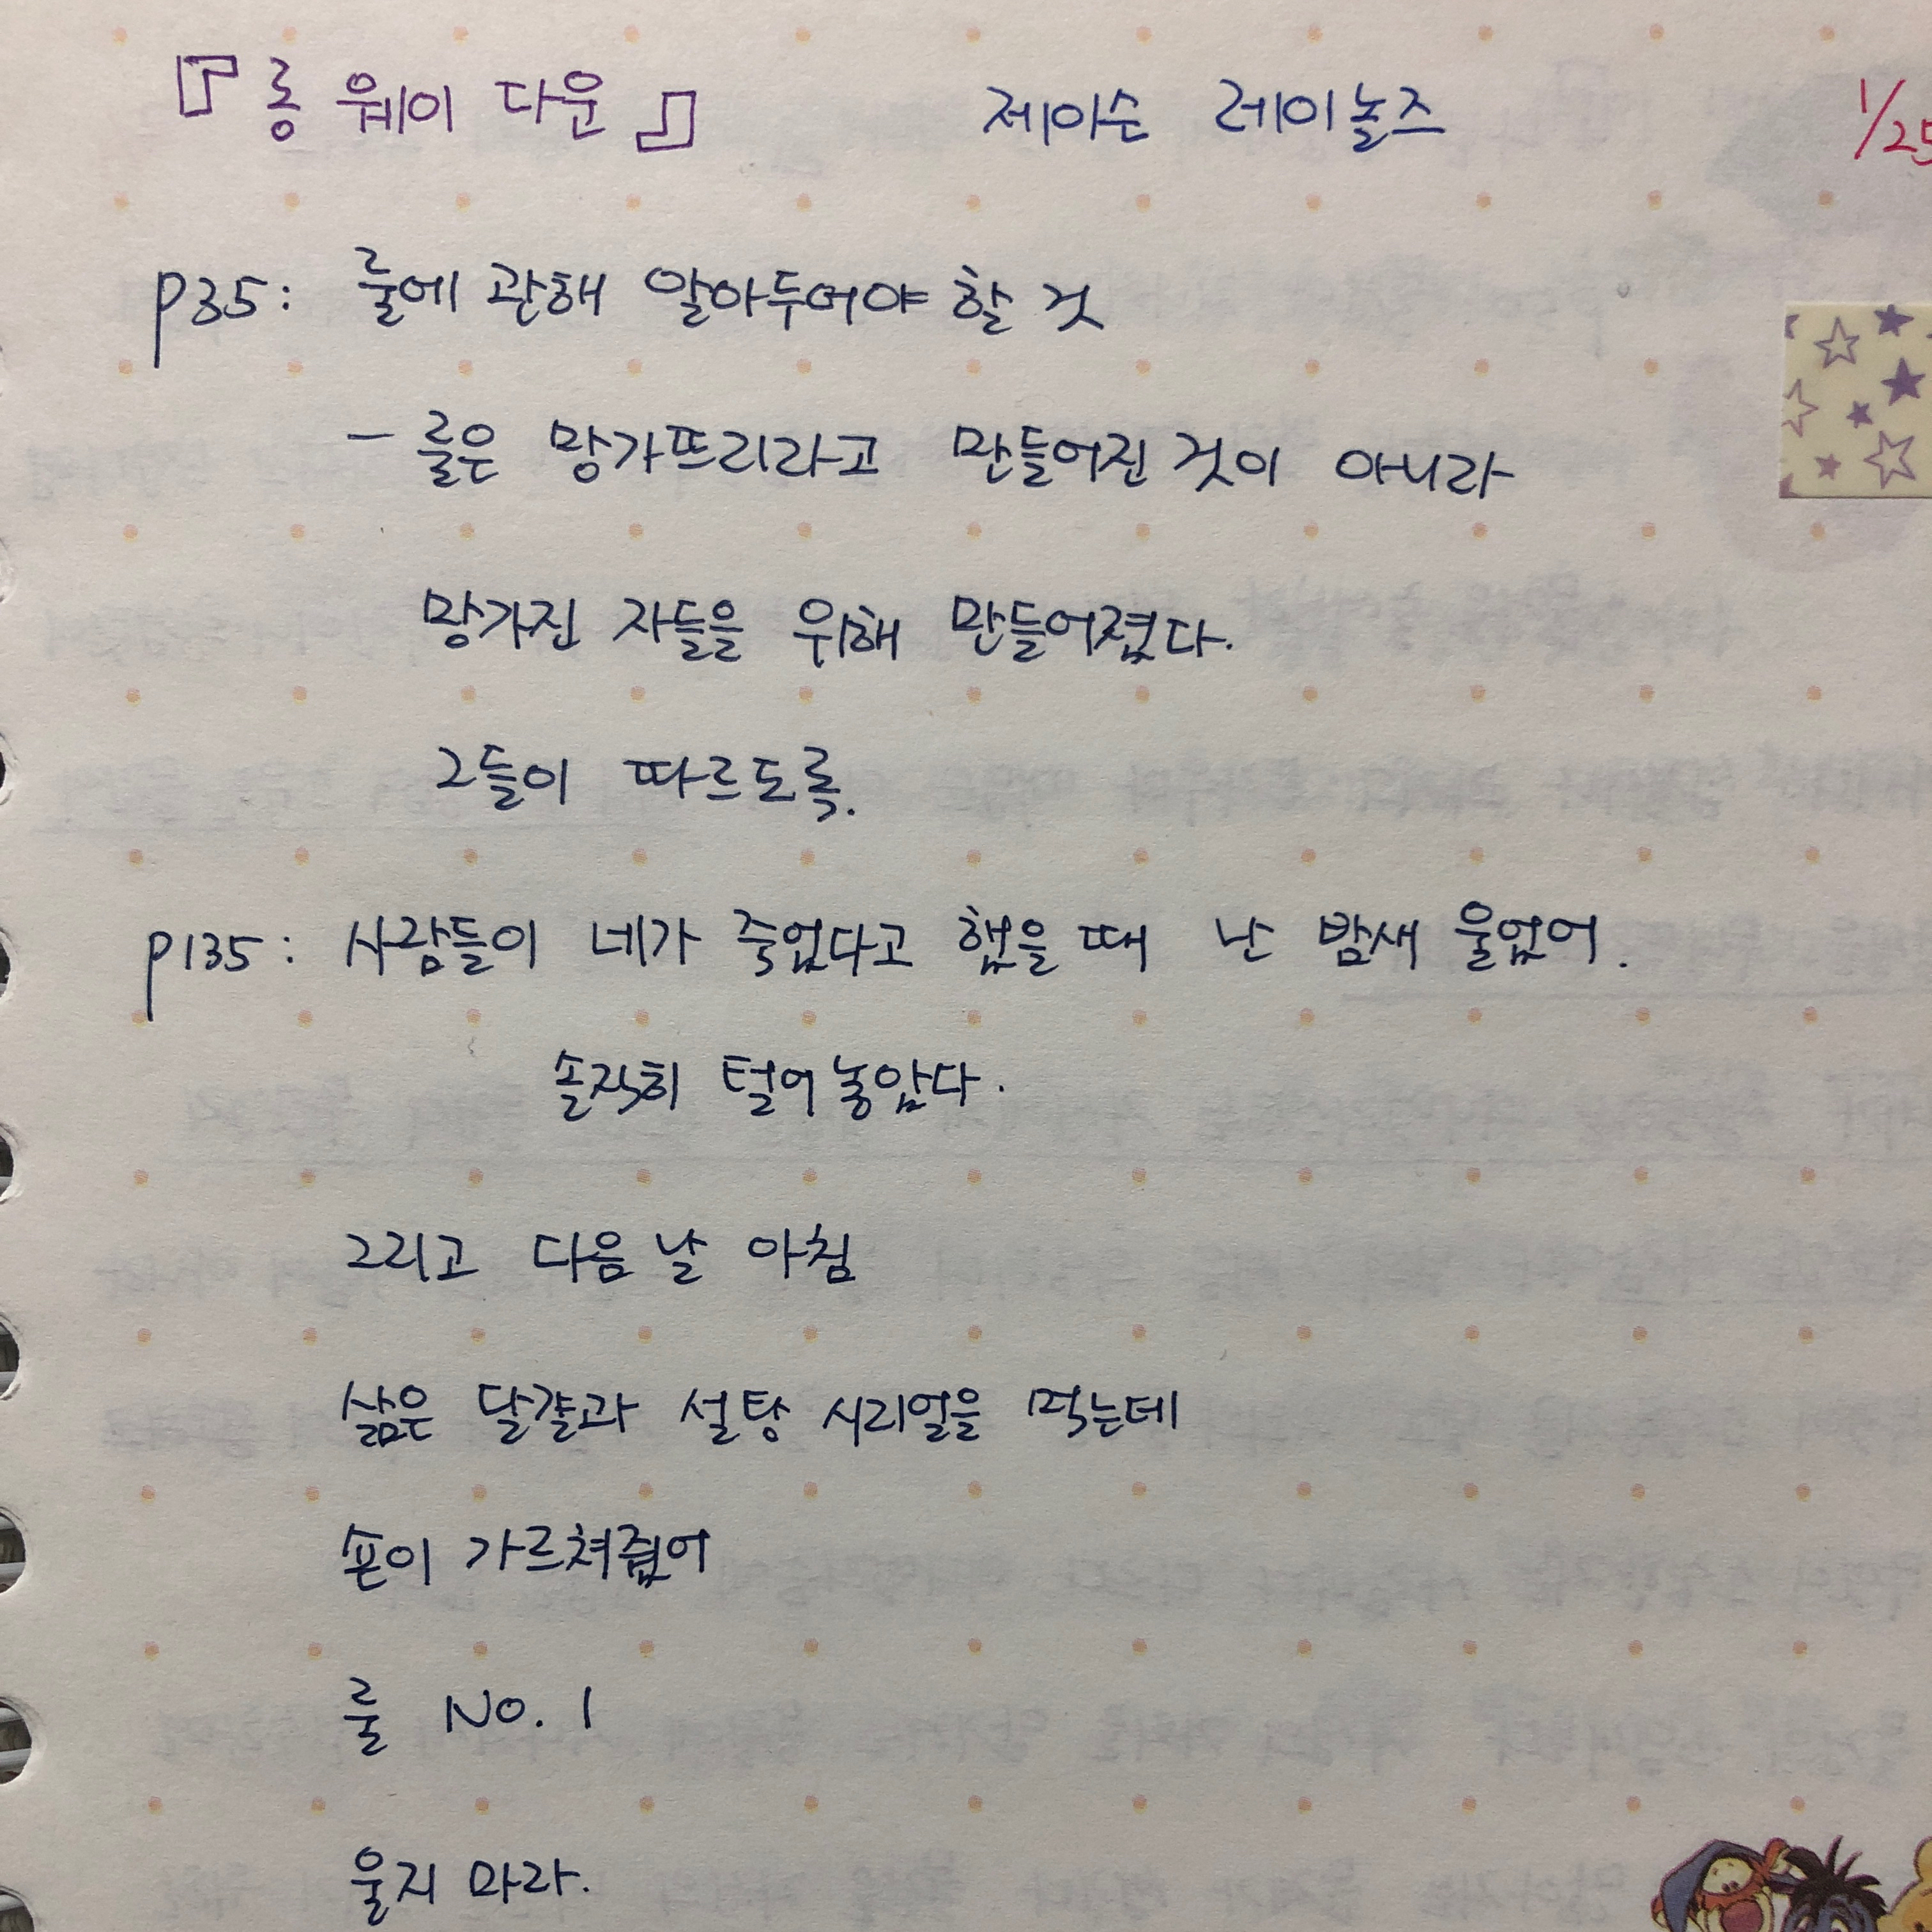 『롱 웨이 다운』 제이슨 레이놀즈 1/25
p35: 룰에 관해 알아두어야 할 것
- 룰은 망가뜨리라고 만들어진 것이 아니라
망가진 자들을 위해 만들어졌다.
그들이 따르도록.
p135: 사람들이 네가 죽었다고 했을 때 난 밤새 울었어.
솔직히 털어놓았다.
그리고 다음 날 아침
삶은 달걀과 설탕 시리얼을 먹는데
숀이 가르쳐줬어
룰 No. 1
울지 마라.